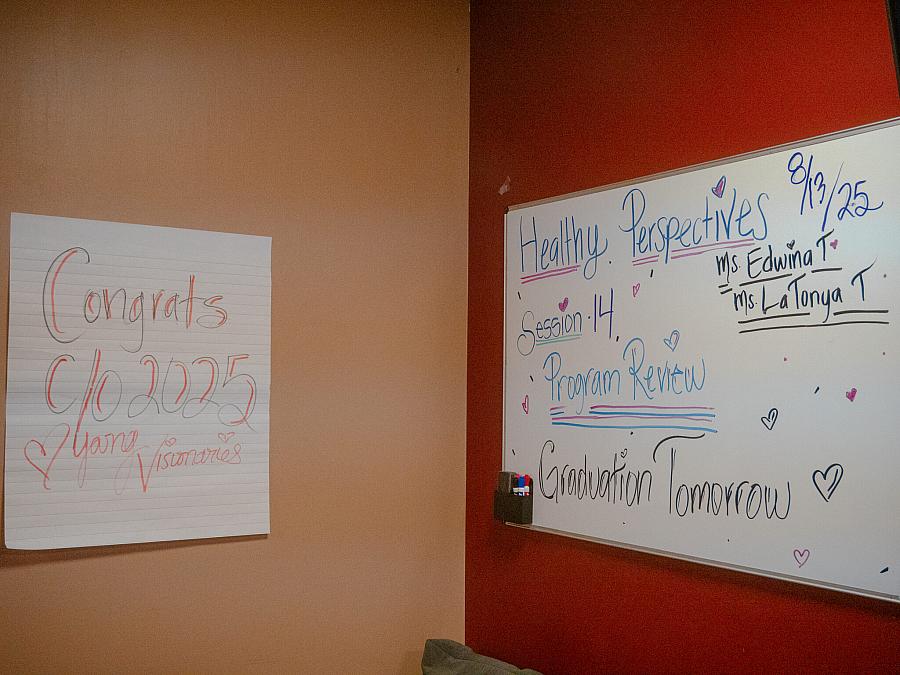 Congrats
C/O 2025
Young
Visionaries
Healthy Perspectives
8/13/25
Ms. Edwina T
Ms. LaTonya T
Session 14
Program Review
Graduation Tomorrow